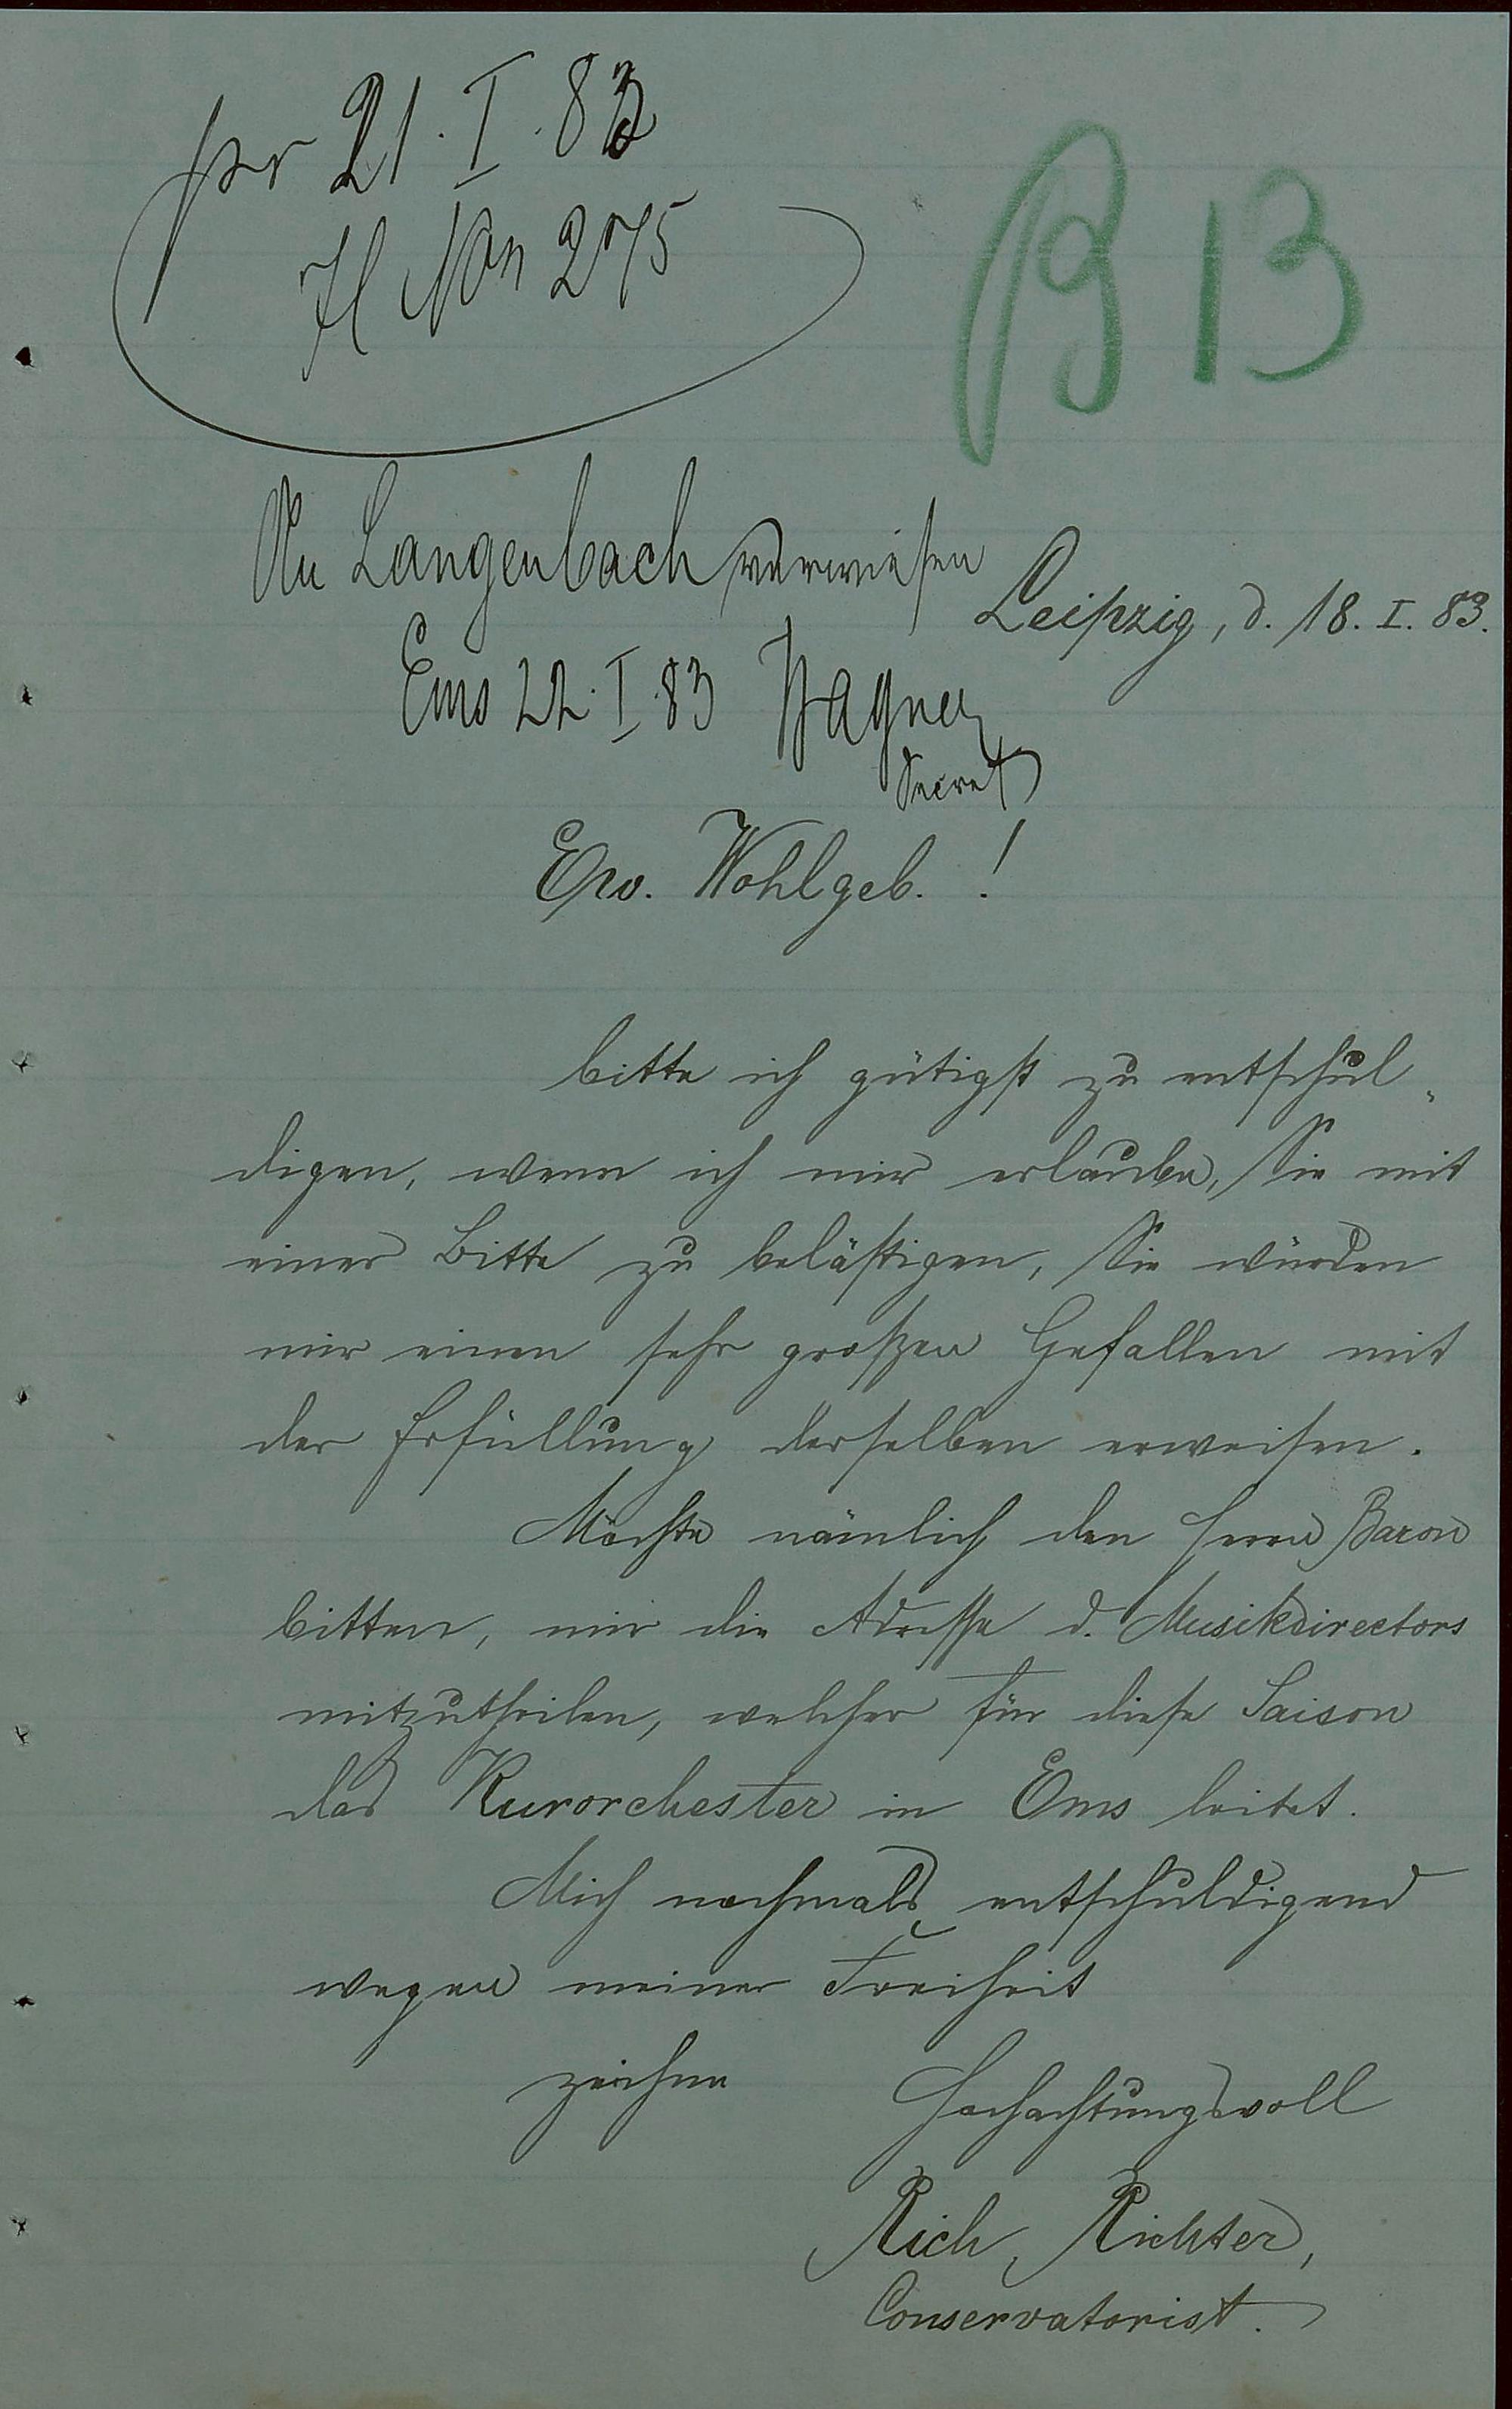 pr 21. I. 83
275
B 13
An Langenbach verwiesen
Leipzig, d. 18. I. 83.
Ems 22. I 83 Wagner
Secret
Ew. Wohlgeb. !
bitte ich gütigst zu entschul„
digen, wenn ich mir erlaube, Sie mit
einer Bitte zu belästigen, Sie würden
mir einen sehr großen Gefallen mit
der Erfüllung derselben erweisen.
Möchte nämlich den Herrn Baron
bitten, mir die Adresse d. Musikdirectors
mitzutheilen, welcher für diese Saison
das Kurorchester in Ems leitet.
Mich nochmals entschuldigend
wegen meiner Freiheit
zeichne Hochachtungsvoll
Rich. Richter,
Conservatorist.